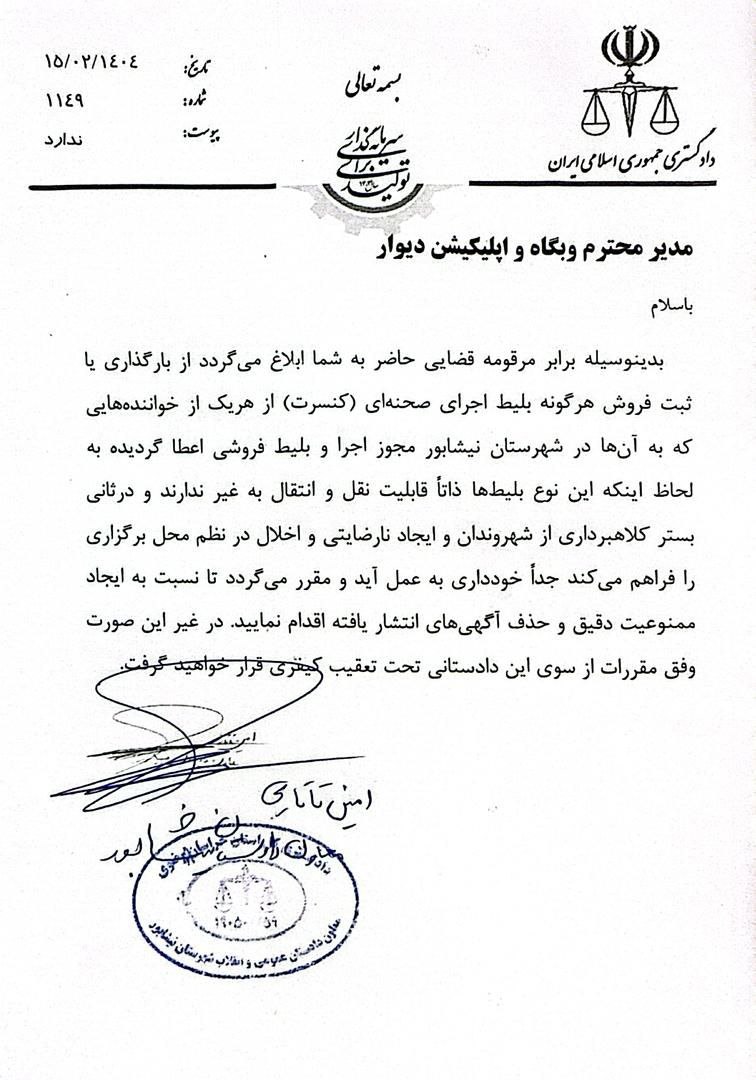 دادگستری جمهوری اسلامی ایران
بسمه تعالی
سرمایه‌گذاری
برای
تولید
تاریخ: ۱۵/۰۲/۱۴۰۴
شماره: ۱۱۴۹
پیوست: ندارد
مدیر محترم وبگاه و اپلیکیشن دیوار
باسلام
بدینوسیله برابر مرقومه قضایی حاضر به شما ابلاغ می‌گردد از بارگذاری یا
ثبت فروش هرگونه بلیط اجرای صحنه‌ای (کنسرت) از هریک از خواننده‌هایی
که به آن‌ها در شهرستان نیشابور مجوز اجرا و بلیط فروشی اعطا گردیده به
لحاظ اینکه این نوع بلیط‌ها ذاتاً قابلیت نقل و انتقال به غیر ندارند و درثانی
بستر کلاهبرداری از شهروندان و ایجاد نارضایتی و اخلال در نظم محل برگزاری
را فراهم می‌کند جداً خودداری به عمل آید و مقرر می‌گردد تا نسبت به ایجاد
ممنوعیت دقیق و حذف آگهی‌های انتشار یافته اقدام نمایید. در غیر این صورت
وفق مقررات از سوی این دادستانی تحت تعقیب کیفری قرار خواهید گرفت.
امین
معاون دادستان
معاون دادستان عمومی و انقلاب شهرستان نیشابور